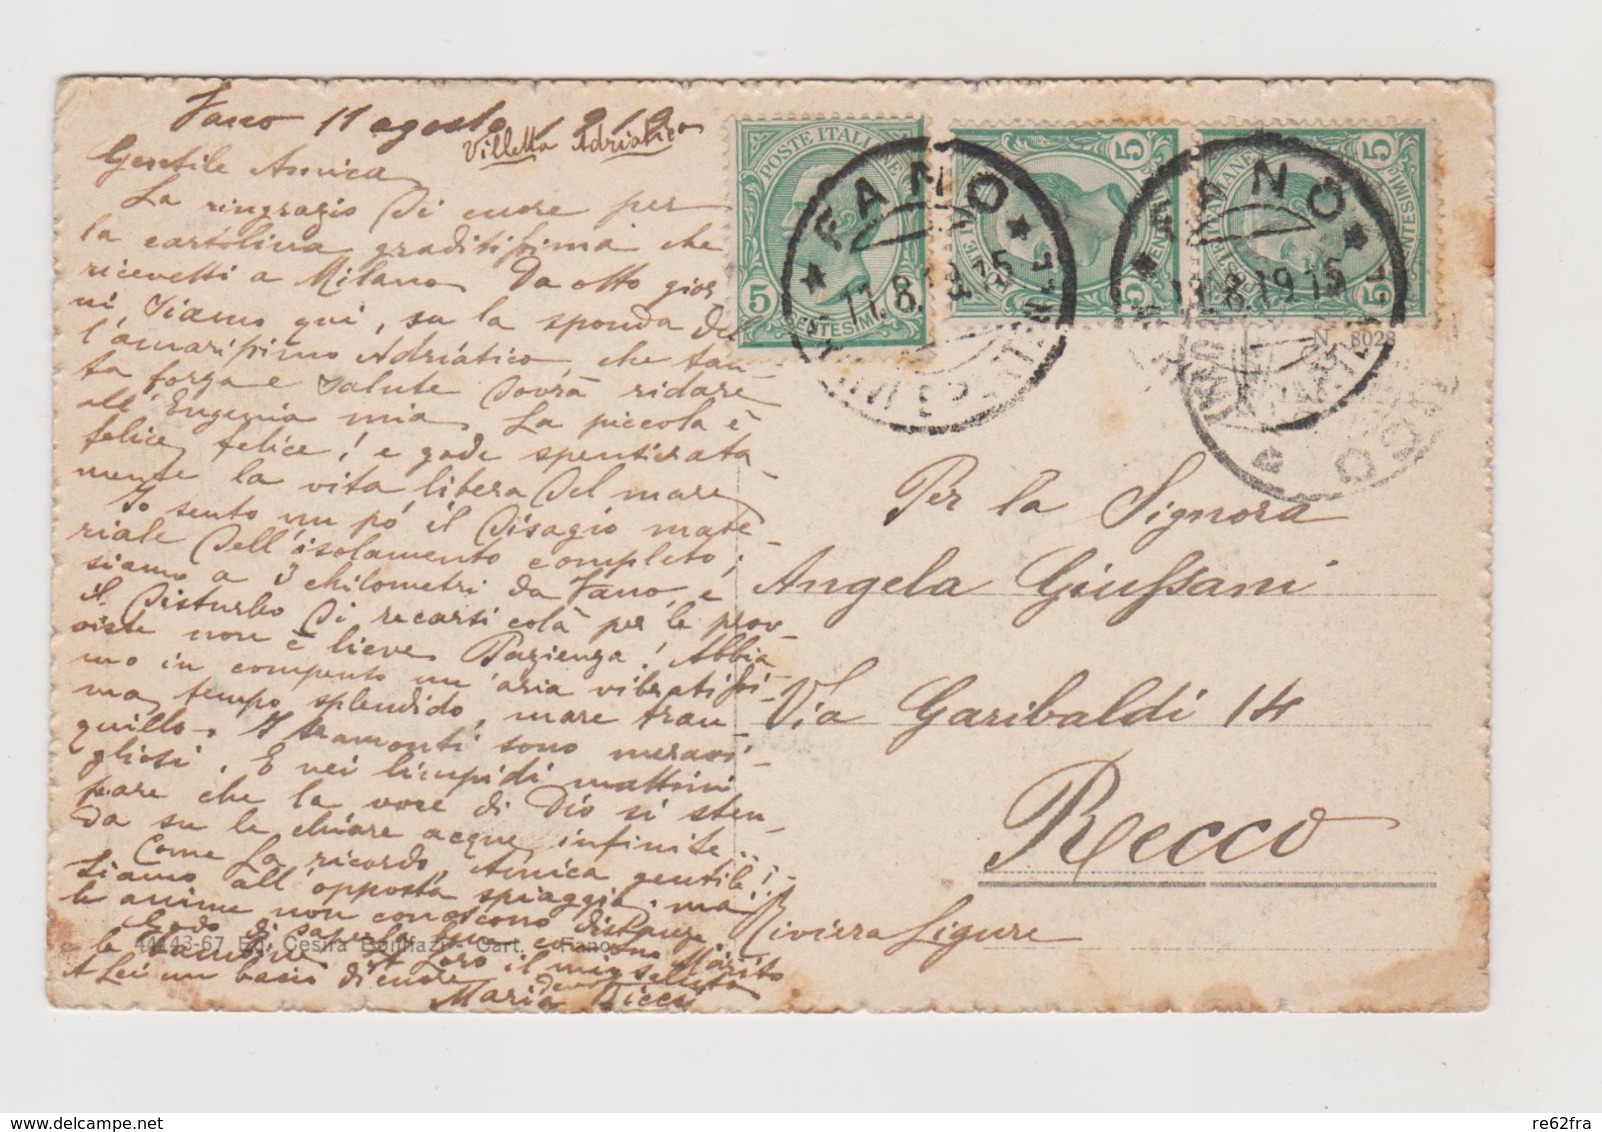 Fano 11 agosto 1919
Villetta Adriatico
Gentile Amica
La ringrazio di cuore per
la cartolina graditissima che
ricevetti a Milano. Da otto gior-
ni, siamo qui, su la sponda del
l'amarissimo Adriatico, che tan-
ta forza e salute dovrà ridare
all'Eugenia mia. La piccola è
felice, felice! e gode spensierata-
mente la vita libera del mare
Io sento un pó il disagio mate-
riale dell'isolamento completo;
siamo a 3 chilometri da Fano, e
il disturbo di recarsi colà per le prov-
viste non è lieve. Pazienza! Abbia-
mo in compenso un'aria vibratissi-
ma, tempo splendido, mare tran-
quillo. I tramonti sono meravi-
gliosi. E nei limpidi mattini
pare che la voce di Dio si sten-
da su le chiare acque infinite...
Come La ricordo, Amica gentile!
Siamo all'opposta spiaggia, ma
le anime non conoscono distanze
Godo di saperla con suo Marito
e le A Loro il mio saluto
A Lei un bacio di cuore devoto
Maria Ricci
44143-67 Ed. Cesira Bonifazi - Cart. - Fano
POSTE ITALIANE
5 CENTESIMI 5
FANO
11.8.19.15
FANO
11.8.19 15
N 8028
Per la Signora
Angela Giussani
Via Garibaldi 14
Recco
Riviera Ligure
re62fra